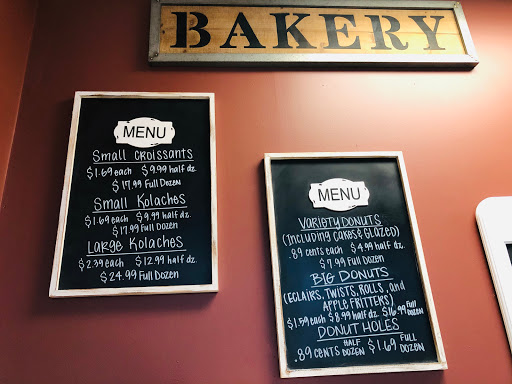 BAKERY
MENU
Small Croissants
$1.69 each $9.99 half dz.
$17.99 Full Dozen
Small Kolaches
$1.69 each $9.99 half dz.
$17.99 Full Dozen
Large Kolaches
$2.39 each $12.99 half dz.
$24.99 Full Dozen
MENU
VARIETY DONUTS
(Including Cakes & Glazed)
.89 cents each $4.99 half dz.
$7.99 Full Dozen
BIG DONUTS
(ECLAIRS, TWISTS, ROLLS, and
APPLE FRITTERS)
$1.59 each $8.99 half dz. $16.99 Full Dozen
DONUT HOLES
.89 CENTS HALF DOZEN $1.69 FULL DOZEN